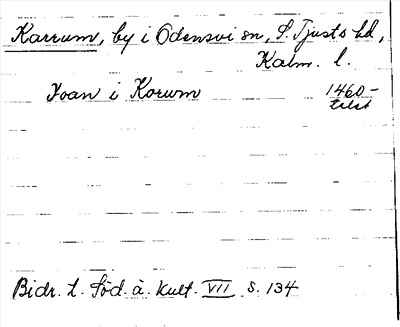 Karrum, by i Odensvi sn, S. Tjusts hd,
Kalm. l.
Ioan i Korum 1460-
talet
Bidr. t. Söd. å. Kult. VII s. 134